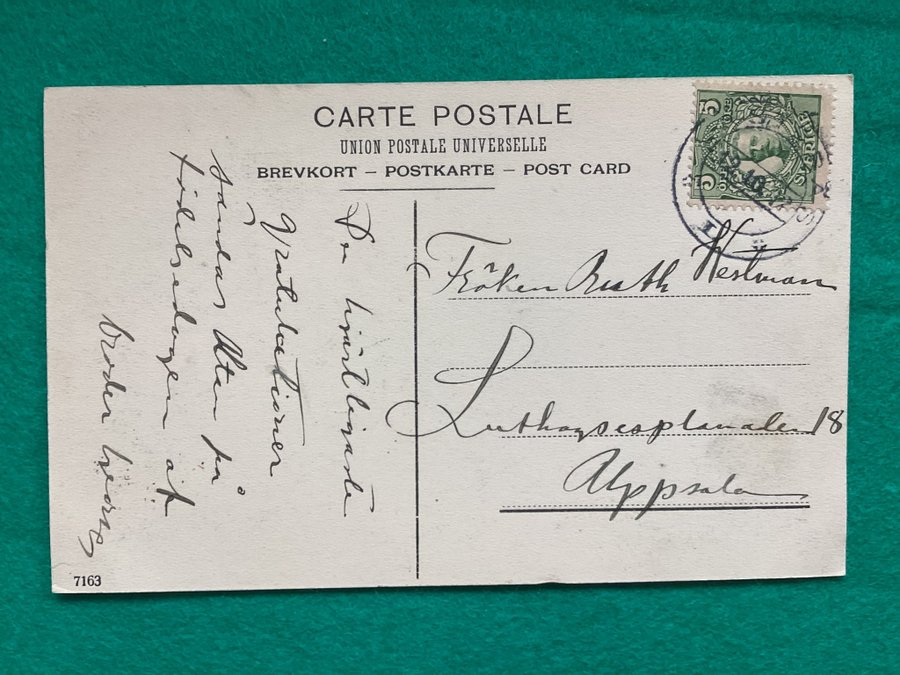 CARTE POSTALE
UNION POSTALE UNIVERSELLE
BREVKORT – POSTKARTE – POST CARD
De hjärtligaste
gratulationer
sändas Dten på
födelsedagen af
broder Georg
Fröken Ruth Westman
Luthagsesplanaden 18
Uppsala
7163
5
5
SVERIGE